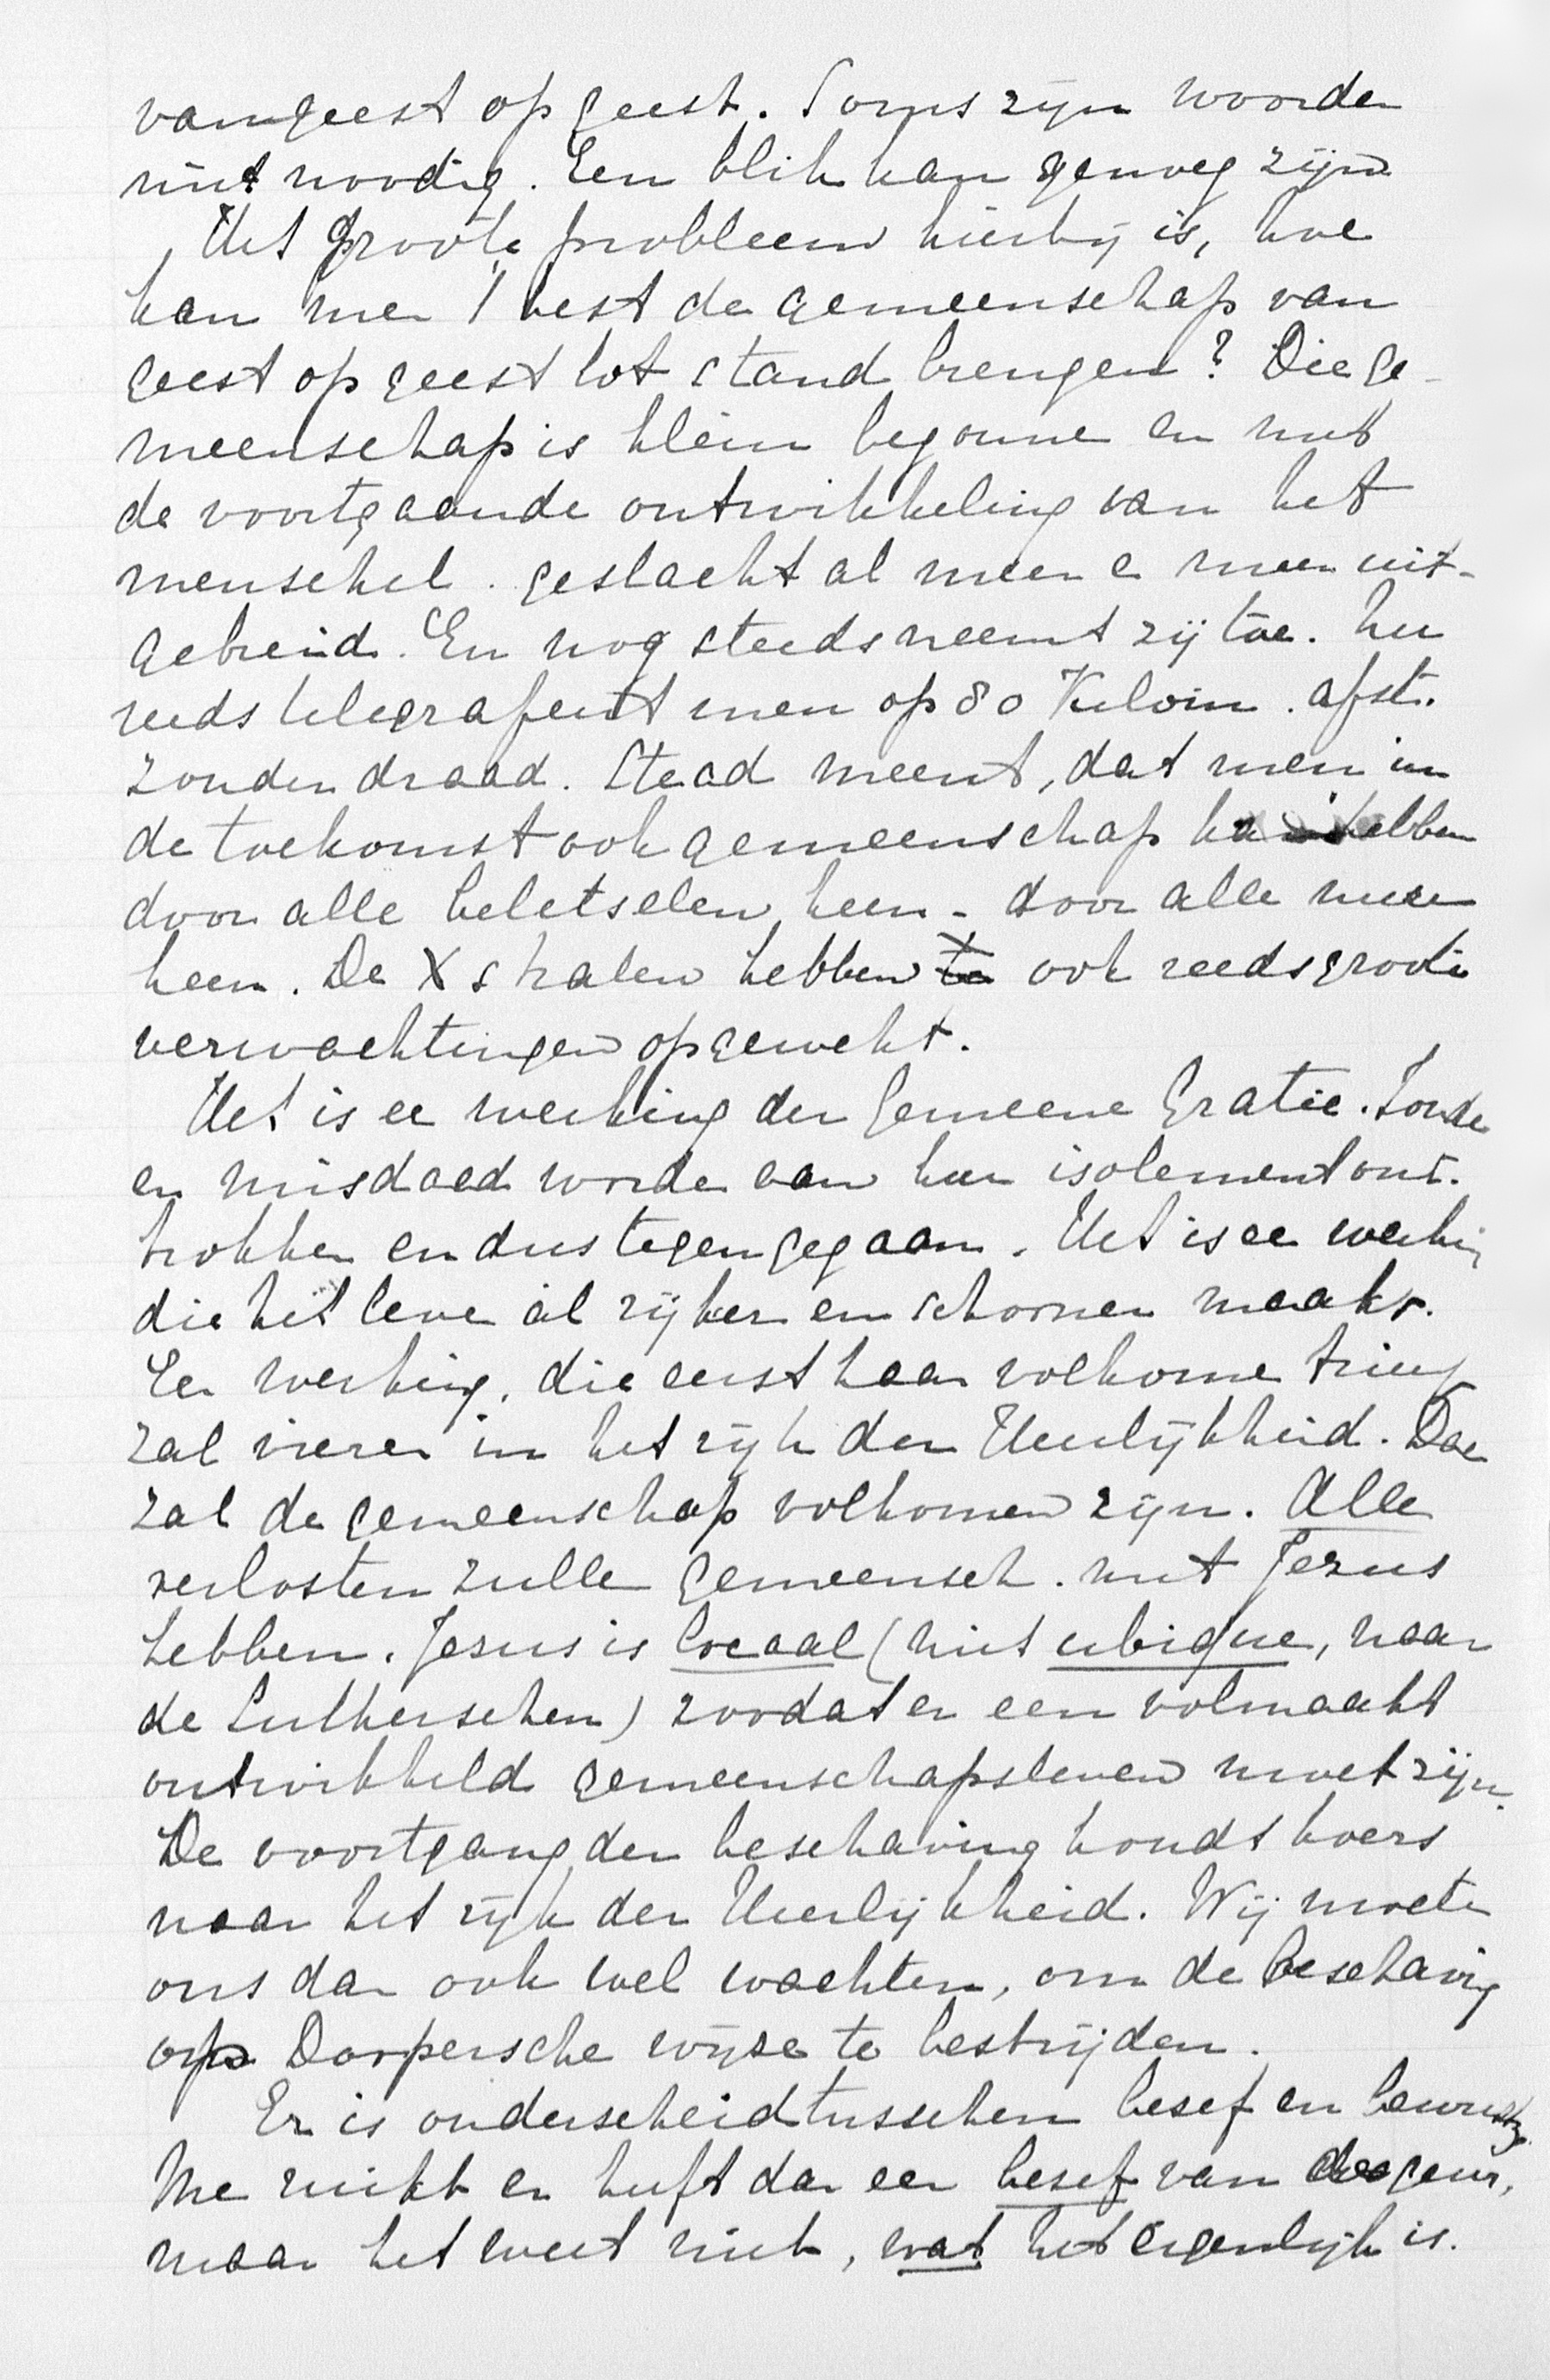 van geest op geest. Soms zijn woorden
niet noodig. Een blik kan genoeg zijn
Het groote probleem hierbij is, hoe
kan men 't best de gemeenschap van
geest op geest tot stand brengen? Die ge-
meenschap is klein begonne en met
de voortgaande ontwikkeling van het
menschel. geslacht al meer e meer uit-
gebreid. En nog steeds neemt zij toe. Nu
reeds telegrafeert men op 80 Kilom. afst.
zonder draad. Stead meent, dat men in
de toekomst ook gemeenschap kan hebben
door alle beletselen heen - door alle muren
heen. De X stralen hebben ook reeds groote
verwachtingen opgewekt.
Het is ee werking der Gemeene Gratie. Zonde
en misdaad worde aan hun isolement ont-
trokken en dus tegengegaan. Het is ee werking
die het leve al rijker en schooner maakt.
Een werking, die eerst haar volkome triumf
zal vieren in het rijk der Heerlijkheid. Daar
zal de gemeenschap volkomen zijn. Alle
verlosten zulle gemeensch. met Jezus
hebben. Jezus is locaal (niet ubique, naar
de Lutherschen) zoodat er een volmaakt
ontwikkeld gemeenschapsleven moet zijn.
De voortgang der beschaving houdt koers
naar het rijk der Heerlijkheid. Wij moeten
ons dan ook wel wachten, om de beschaving
op Dorpersche wijze te bestrijden.
Er is onderscheid tusschen besef en bewustz.
Me ruikt en heeft dan een besef van de geur,
maar het weet niet, wat het eigenlijk is.